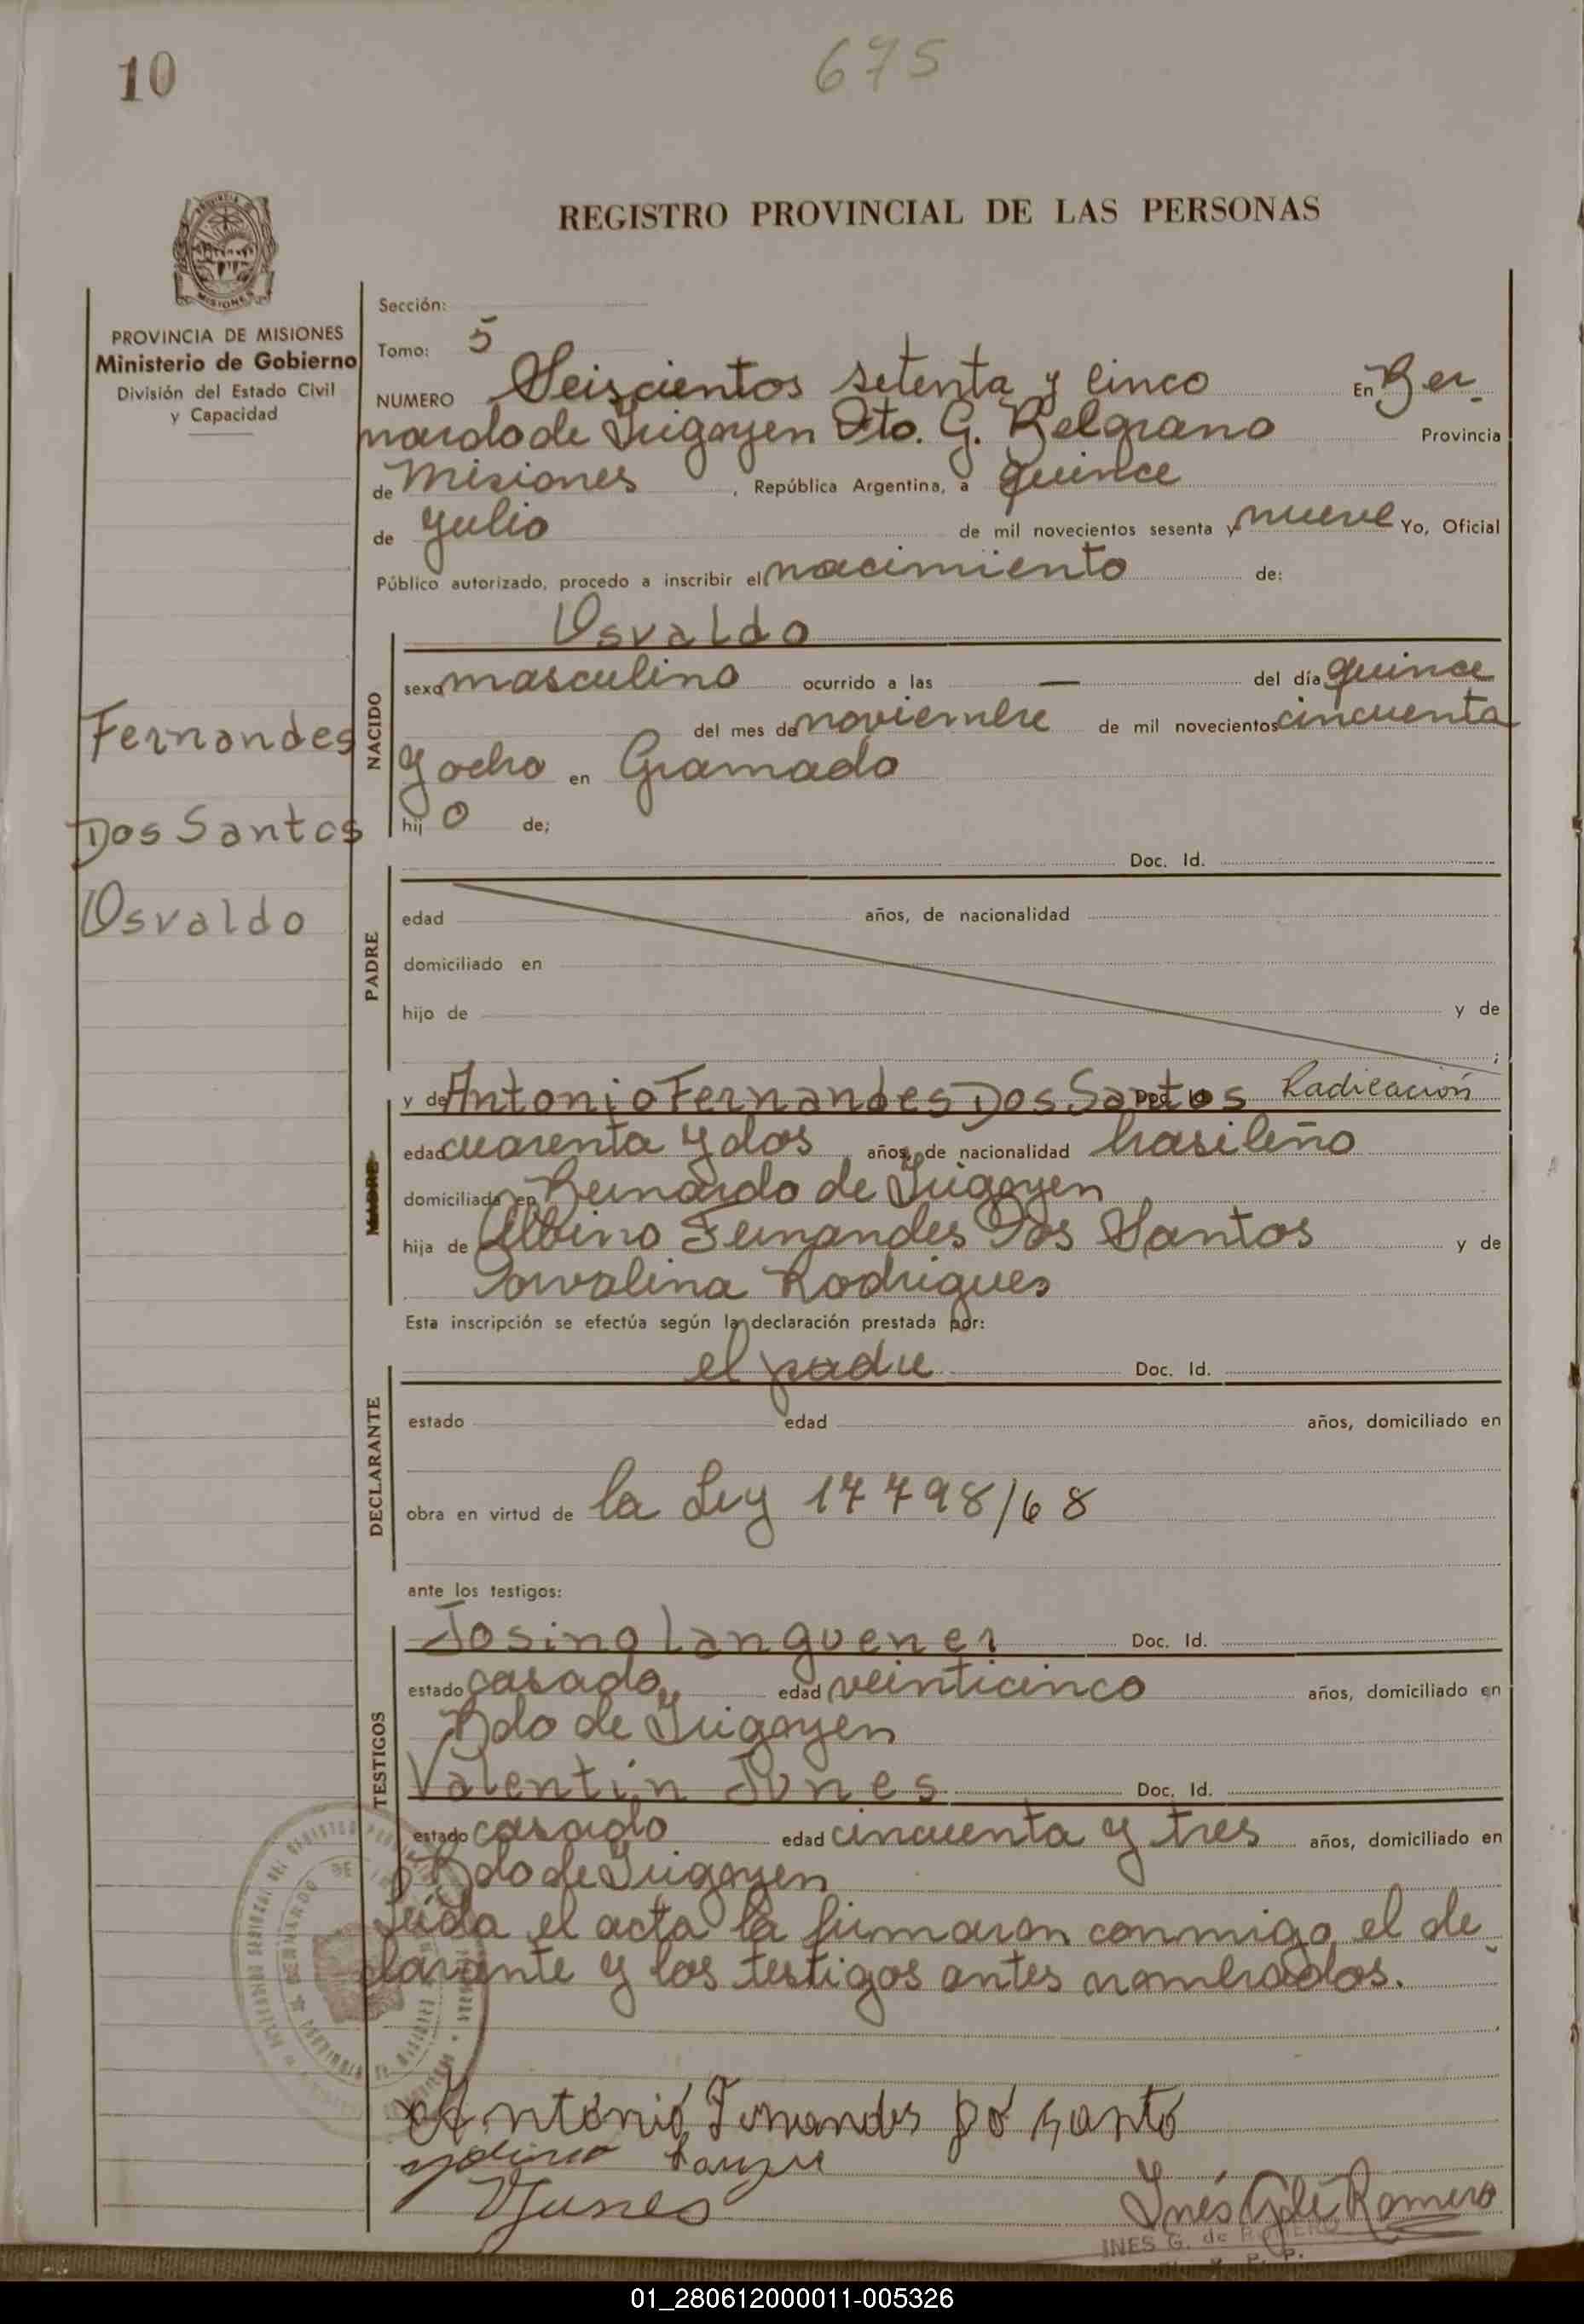 10
675
REGISTRO PROVINCIAL DE LAS PERSONAS
MISIONES
PROVINCIA DE MISIONES
Ministerio de Gobierno
División del Estado Civil
y Capacidad
Fernandes
Dos Santos
Osvaldo
Sección:
Tomo: 5
NUMERO Seiscientos setenta y cinco En Ber-
nardo de Irigoyen Dto. G. Belgrano Provincia
de Misiones, República Argentina, a quince
de julio de mil novecientos sesenta y nueve Yo, Oficial
Público autorizado, procedo a inscribir el nacimiento de:
NACIDO
Osvaldo
sexo masculino ocurrido a las — del día quince
del mes de noviembre de mil novecientos cincuenta
y ocho en Gramado
hij o de;
PADRE
Doc. Id.
edad años, de nacionalidad
domiciliado en
hijo de y de
;
MADRE
y de Antonio Fernandes Dos Santos Doc. Id. Radicación
edad cuarenta y dos años, de nacionalidad brasileño
domiciliada en Bernardo de Irigoyen
hija de Albino Fernandes Dos Santos y de
Rodrigues
Esta inscripción se efectúa según la declaración prestada por:
DECLARANTE
el padre Doc. Id.
estado edad años, domiciliado en
obra en virtud de la Ley 17798/68
ante los testigos:
TESTIGOS
Josino Languener Doc. Id.
estado casado edad veinticinco años, domiciliado en
Bdo de Irigoyen
Valentin Junes Doc. Id.
estado casado edad cincuenta y tres años, domiciliado en
Bdo de Irigoyen
Leida el acta la firmaron conmigo el de-
clarante y los testigos antes nombrados.
Antonio Fernandes do santo
VJunes
Inés G de Romero
INES G. de ROMERO
01_280612000011-005326